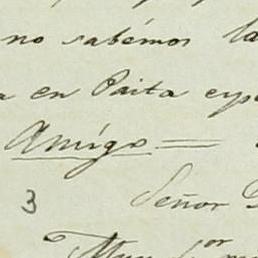 no sabémos la
en Paita
Amígo
3
Señor